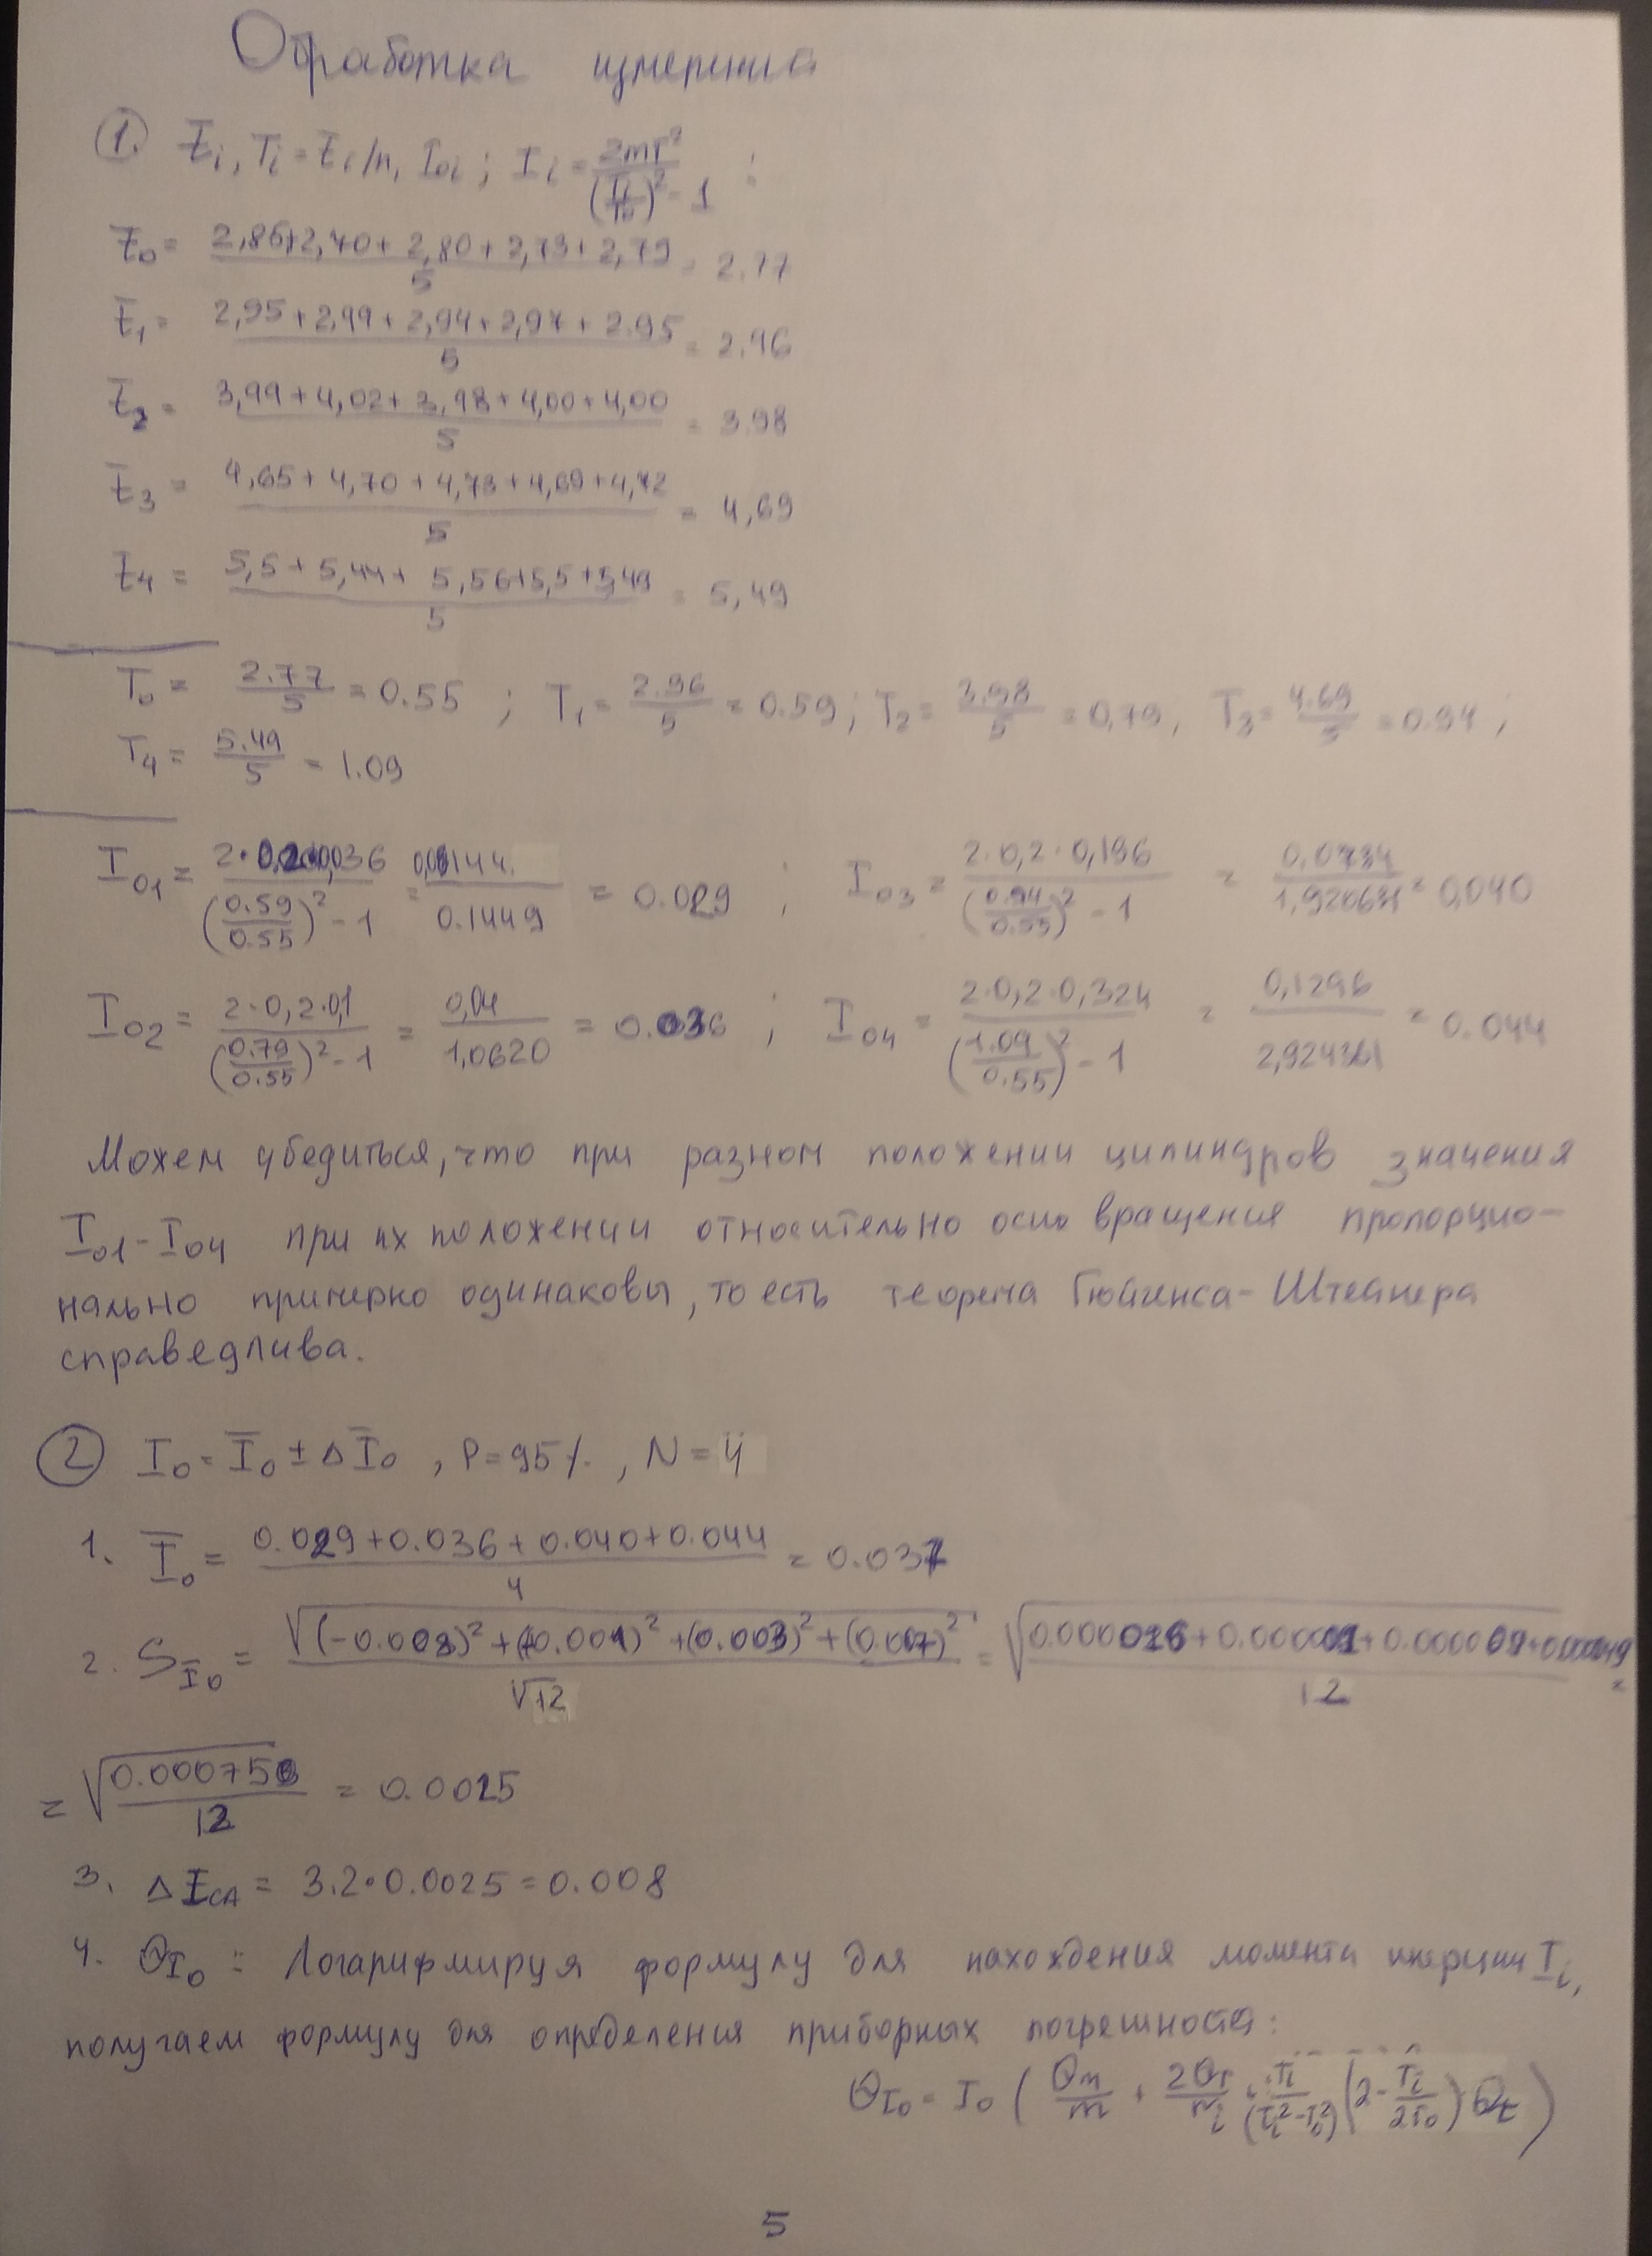 Обработка измерения
1. t̄i, Ti = t̄i/n, I0i; Ii = 2mr²/((Ti/T0)² - 1) :
t̄0 = (2,86+2,70+2,80+2,73+2,79)/5 = 2.77
t̄1 = (2,95+2,99+2,94+2,97+2.95)/5 = 2.96
t̄2 = (3,99+4,02+3,98+4,00+4,00)/5 = 3.98
t̄3 = (4,65+4,70+4,73+4,69+4,72)/5 = 4,69
t̄4 = (5,5+5,44+5,56+5,5+5,49)/5 = 5,49
T0 = 2.77/5 = 0.55 ; T1 = 2.96/5 = 0.59; T2 = 3.98/5 = 0,79, T3 = 4.69/5 = 0.94 ;
T4 = 5.49/5 = 1.09
I01 = 2·0,2·0,036/((0.59/0.55)² - 1) = 0,0144/0.1449 = 0.029 ; I03 = 2·0,2·0,196/((0.94/0.55)² - 1) = 0,0784/1,920631 = 0,040
I02 = 2·0,2·0,1/((0.79/0.55)² - 1) = 0,04/1,0620 = 0.036 ; I04 = 2·0,2·0,324/((1.09/0.55)² - 1) = 0,1296/2,924361 = 0.044
Можем убедиться, что при разном положении цилиндров значения
I01 - I04 при их положении относительно оси вращения пропорцио-
нально примерно одинаковы, то есть теорема Гюйгенса-Штейнера
справедлива.
2 I0 = Ī0 ± ΔĪ0 , P = 95%, N = 4
1. Ī0 = (0.029+0.036+0.040+0.044)/4 = 0.037
2. SĪ0 = √((-0.008)² + (-0.001)² + (0.003)² + (0.007)²)/√12 = √((0.000016+0.000001+0.000009+0.000049)/12) =
= √(0.000075/12) = 0.0025
3. ΔIСЛ = 3.2·0.0025 = 0.008
4. θI0 : Логарифмируя формулу для нахождения момента инерции Ii,
получаем формулу для определения приборных погрешностей:
θI0 = I0 (θm/m + 2θr/ri + Ti/(Ti²-T0²) (2 - Ti/2T0) θt)
5